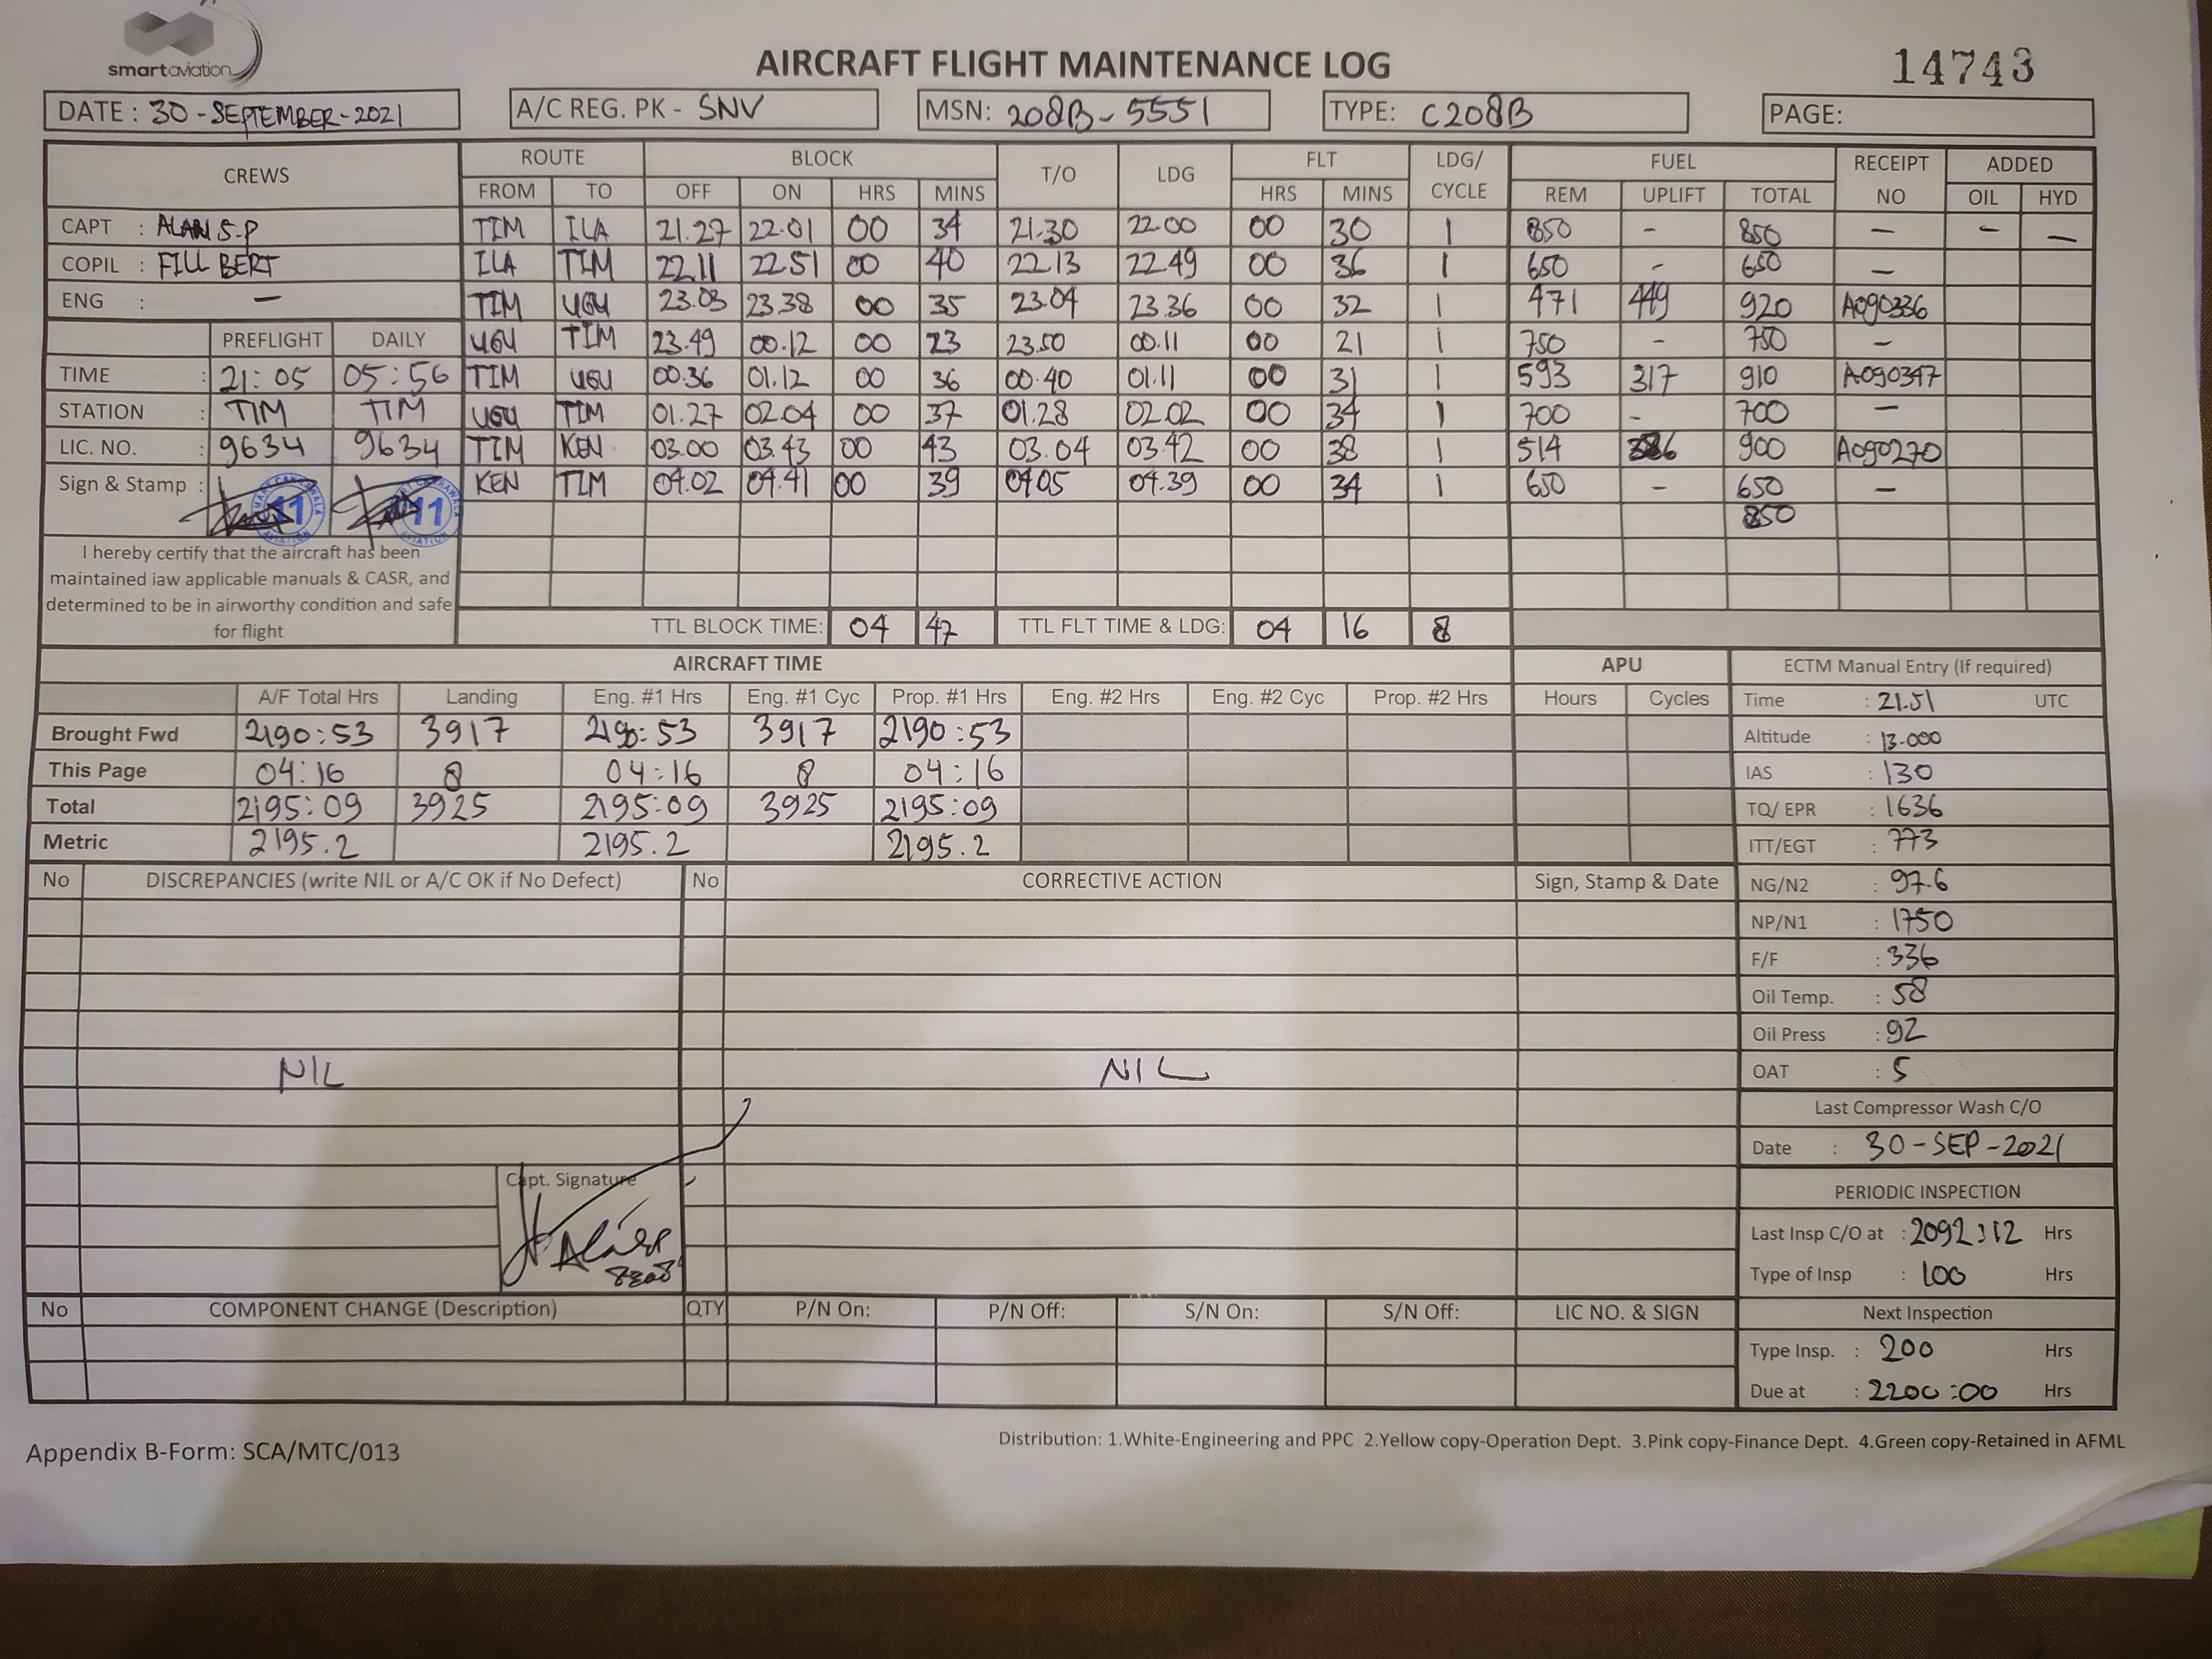 smartaviation
AIRCRAFT FLIGHT MAINTENANCE LOG
14743
DATE : 30 - SEPTEMBER - 2021
A/C REG. PK - SNV
MSN: 208B - 5551
TYPE: C208B
PAGE:
CREWS ROUTE BLOCK T/O LDG FLT LDG/ CYCLE FUEL RECEIPT NO ADDED
FROM TO OFF ON HRS MINS HRS MINS REM UPLIFT TOTAL OIL HYD
CAPT : ALAN S.P TIM ILA 21.27 22.01 00 34 21.30 22.00 00 30 1 850 - 850 - - -
COPIL : FILL BERT ILA TIM 22.11 22.51 00 40 22.13 22.49 00 36 1 650 - 650 -
ENG : - TIM UGU 23.03 23.38 00 35 23.04 23.36 00 32 1 471 449 920 A090336
PREFLIGHT DAILY UGU TIM 23.49 00.12 00 23 23.50 00.11 00 21 1 750 - 750 -
TIME : 21:05 05:56 TIM UGU 00.36 01.12 00 36 00.40 01.11 00 31 1 593 317 910 A090347
STATION : TIM TIM UGU TIM 01.27 02.04 00 37 01.28 02.02 00 34 1 700 - 700 -
LIC. NO. : 9634 9634 TIM KEN 03.00 03.43 00 43 03.04 03.42 00 38 1 514 386 900 A090270
Sign & Stamp : 11 11 KEN TIM 04.02 04.41 00 39 04.05 04.39 00 34 1 650 - 650 -
850
I hereby certify that the aircraft has been
maintained iaw applicable manuals & CASR, and
determined to be in airworthy condition and safe
for flight
TTL BLOCK TIME: 04 47 TTL FLT TIME & LDG: 04 16 8
AIRCRAFT TIME APU ECTM Manual Entry (If required)
A/F Total Hrs Landing Eng. #1 Hrs Eng. #1 Cyc Prop. #1 Hrs Eng. #2 Hrs Eng. #2 Cyc Prop. #2 Hrs Hours Cycles Time : 21.51 UTC
Brought Fwd 2190:53 3917 2190:53 3917 2190:53 Altitude : 13.000
This Page 04:16 8 04:16 8 04:16 IAS : 130
Total 2195:09 3925 2195:09 3925 2195:09 TQ/ EPR : 1636
Metric 2195.2 2195.2 2195.2 ITT/EGT : 773
No DISCREPANCIES (write NIL or A/C OK if No Defect) No CORRECTIVE ACTION Sign, Stamp & Date NG/N2 : 97.6
NP/N1 : 1750
F/F : 336
Oil Temp. : 58
Oil Press : 92
NIL NIL OAT : 5
Last Compressor Wash C/O
Date : 30 - SEP - 2021
Capt. Signature
PERIODIC INSPECTION
Last Insp C/O at : 2092:12 Hrs
Type of Insp : 100 Hrs
No COMPONENT CHANGE (Description) QTY P/N On: P/N Off: S/N On: S/N Off: LIC NO. & SIGN Next Inspection
Type Insp. : 200 Hrs
Due at : 2200:00 Hrs
Appendix B-Form: SCA/MTC/013
Distribution: 1.White-Engineering and PPC 2.Yellow copy-Operation Dept. 3.Pink copy-Finance Dept. 4.Green copy-Retained in AFML